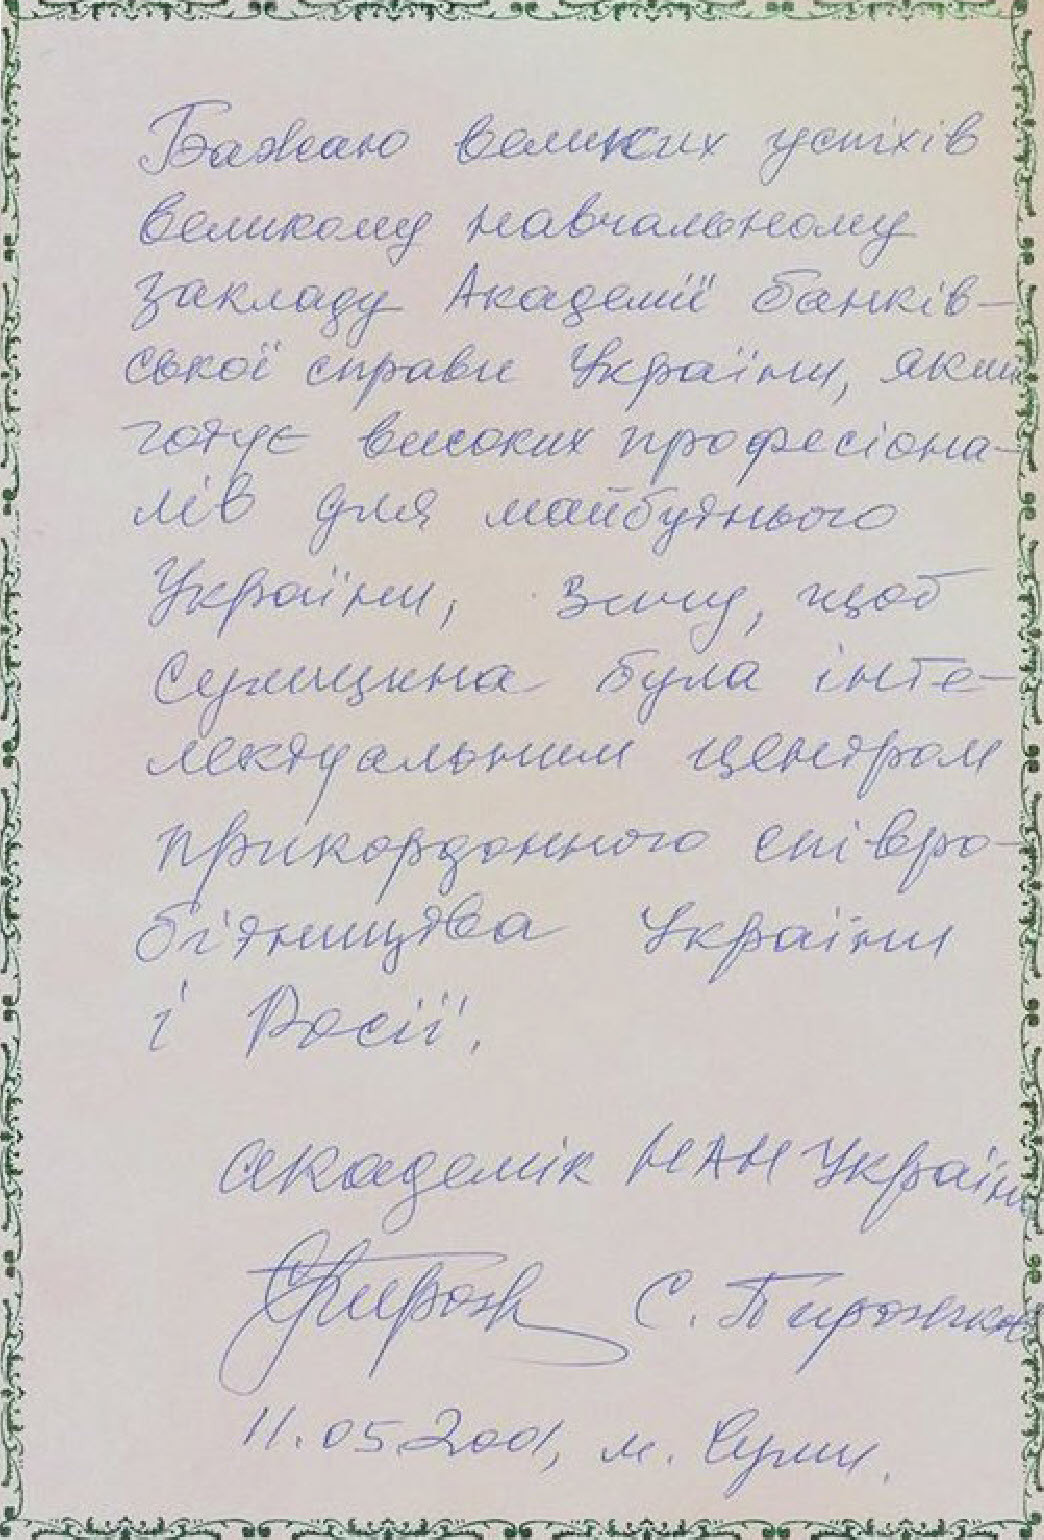 Бажаю великих успіхів
великому навчальному
закладу Академії банків-
ської справи України, який
готує високих професіона-
лів для майбутнього
України, Зичу, щоб
Сумщина була інте-
лектуальним центром
прикордонного співро-
бітництва України
і Росії.
академік НАН України
С. Пирожков
11.05.2001, м. Суми.